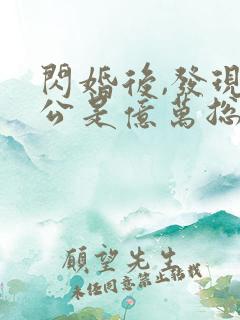 閃婚後,發現
公是億萬總
願望先生
未经同意禁止转载